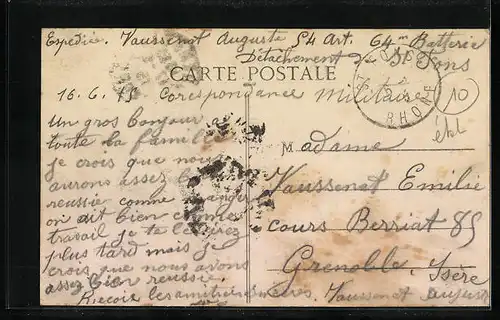 Expedie. Vaussenat Auguste 54 Art. 64m Batterie
Détachement de St Fons
CARTE POSTALE
16.6.15 Corespondance Militaire
RHONE
10
un gros bonjour
toute la famille
je crois que nous
aurons assez
reussie comme
on dit bien
travail je te le
plus tard mais je
crois que nous avons
assez bien reussie
Reçois les amitiés
M adame
Vaussenat Emilie
cours Berriat 85
Grenoble, Isère
Vaussenat August